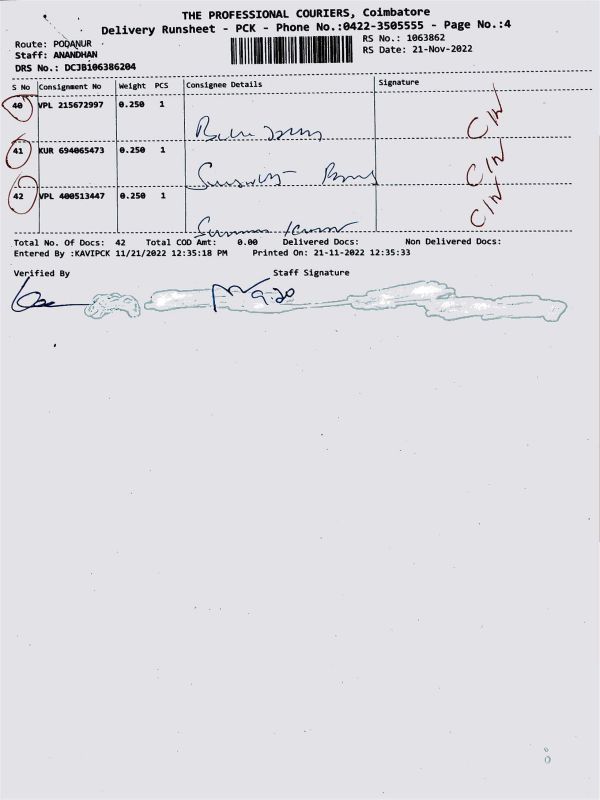 THE PROFESSIONAL COURIERS, Coimbatore
Delivery Runsheet - PCK - Phone No.:0422-3505555 - Page No.:4
Route: PODANUR
RS No.: 1063862
Staff: ANANDHAN
RS Date: 21-Nov-2022
DRS No.: DCJB106386204
S No Consignment No Weight PCS Consignee Details Signature
40 VPL 215672997 0.250 1
41 KUR 694065473 0.250 1
42 VPL 400513447 0.250 1
Total No. Of Docs: 42 Total COD Amt: 0.00 Delivered Docs: Non Delivered Docs:
Entered By :KAVIPCK 11/21/2022 12:35:18 PM Printed On: 21-11-2022 12:35:33
Verified By Staff Signature
9.20